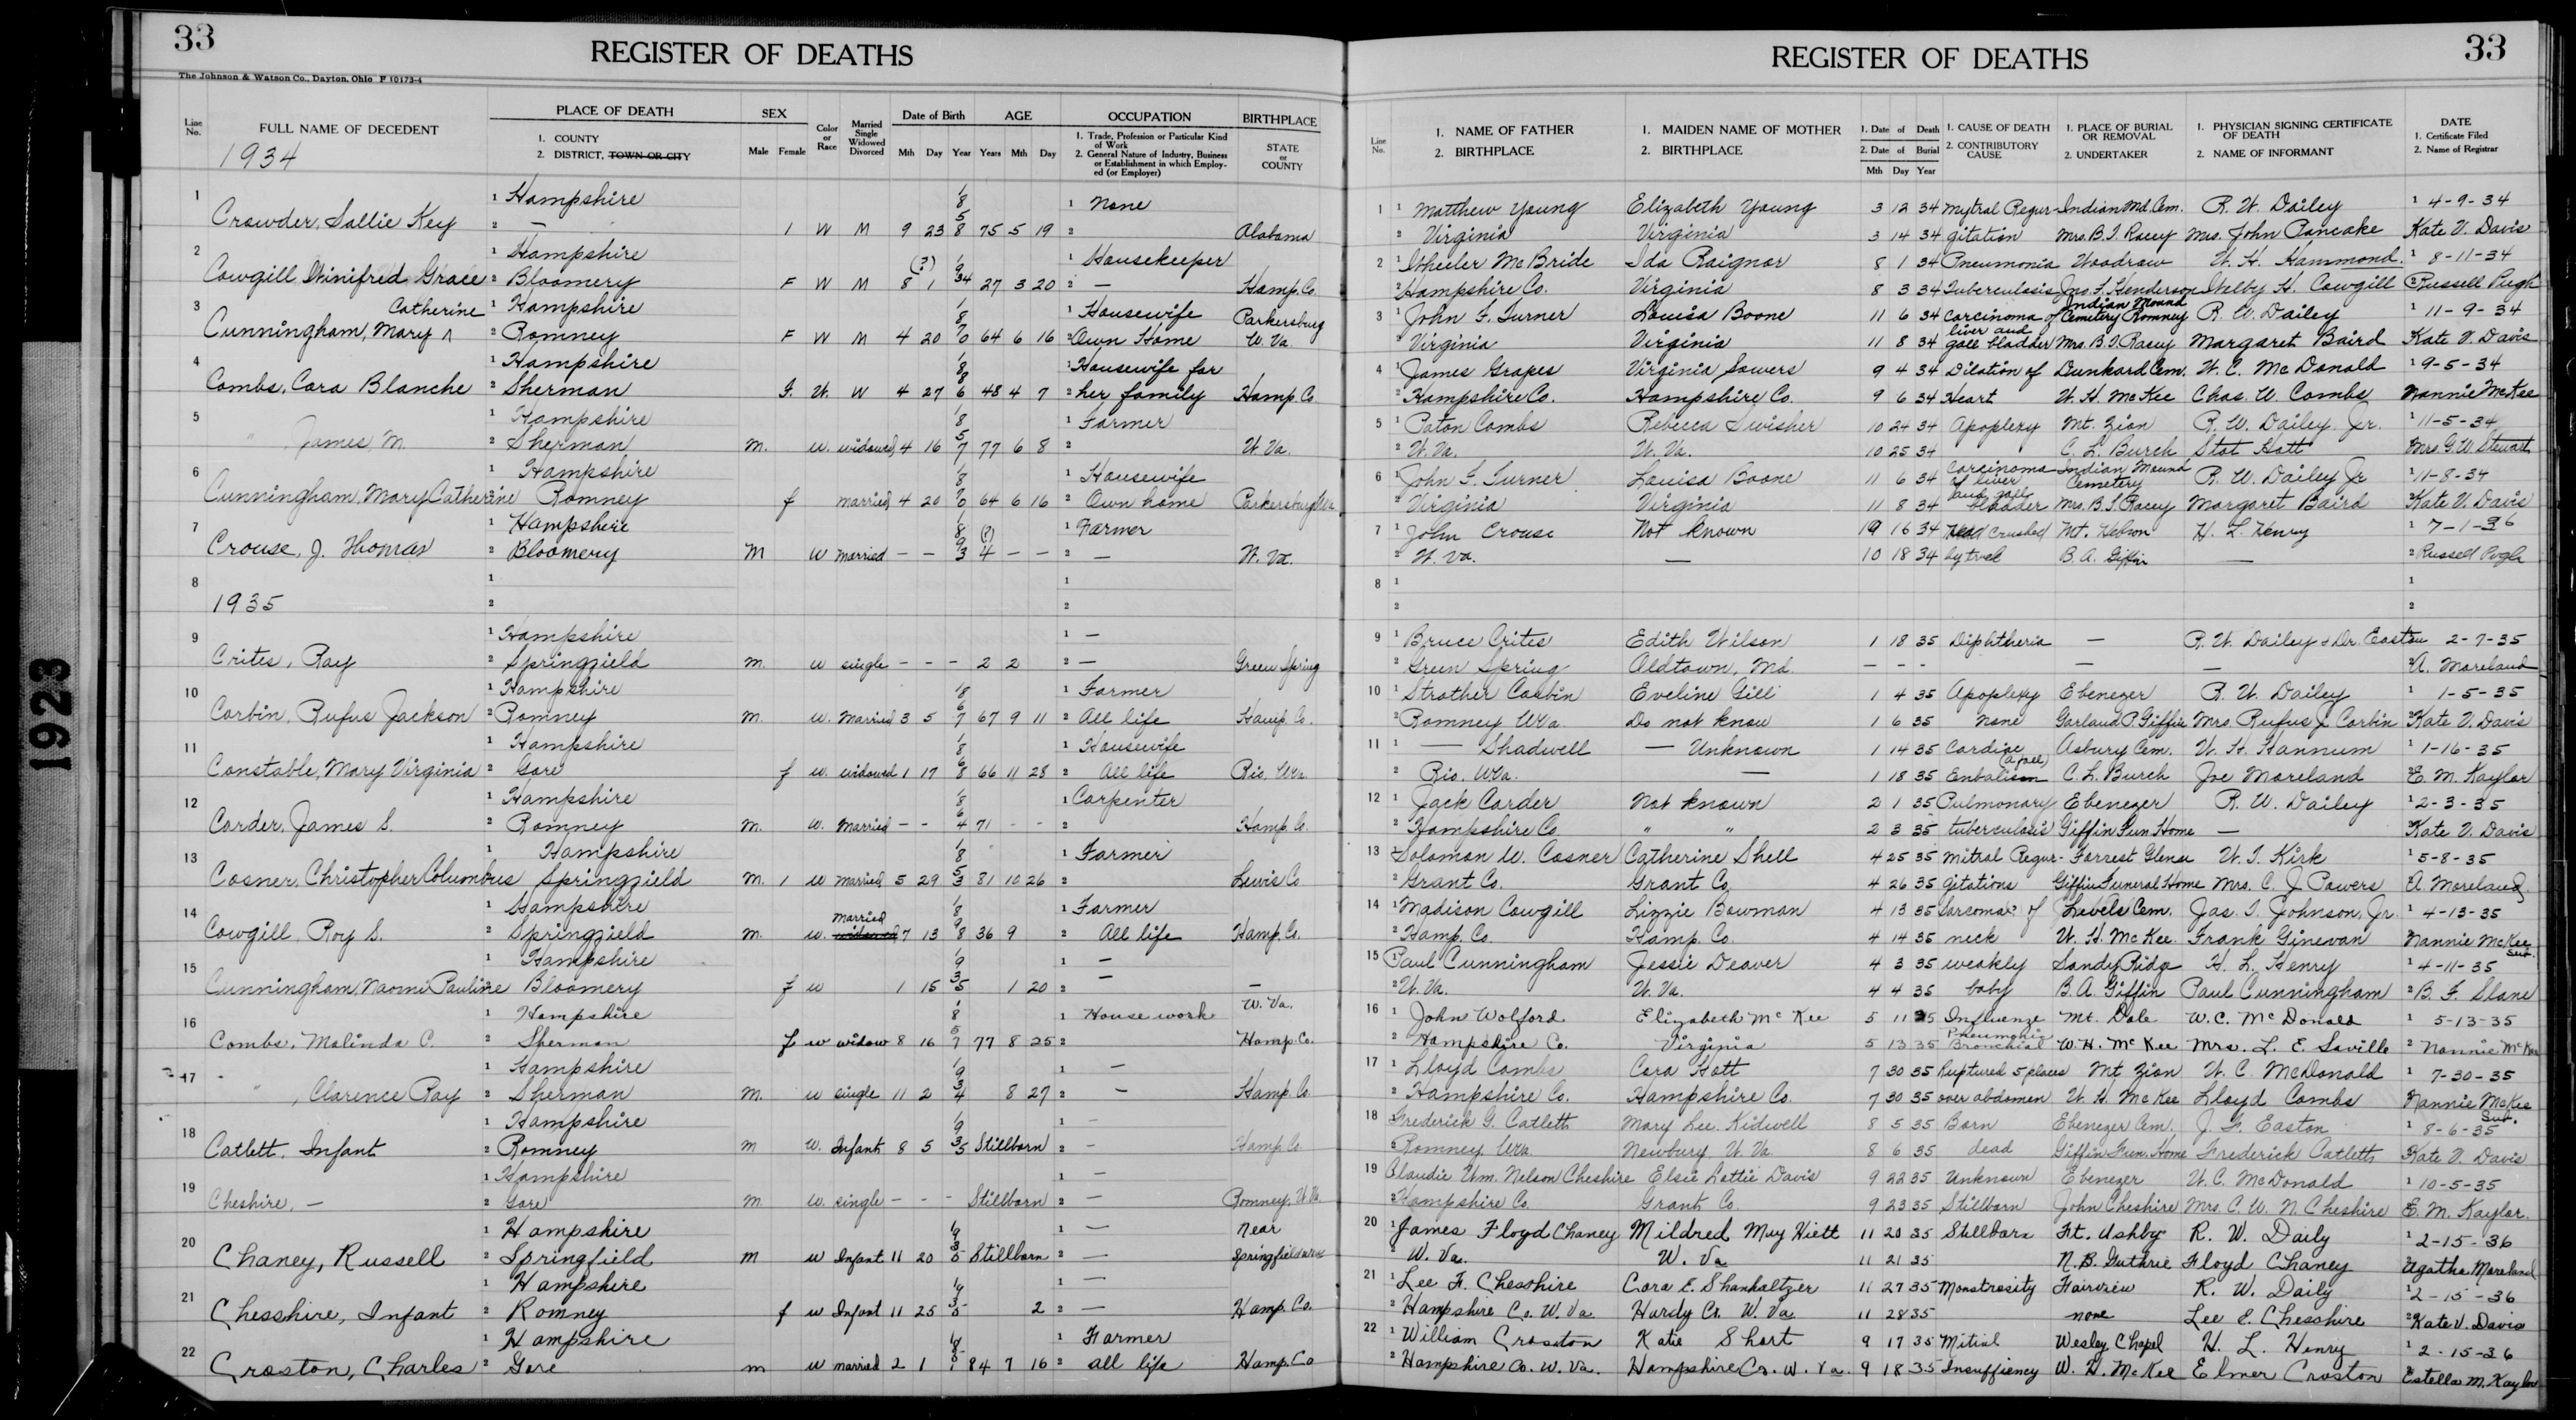 33
REGISTER OF DEATHS
The Johnson & Watson Co., Dayton, Ohio F 10173-4
Line No. FULL NAME OF DECEDENT PLACE OF DEATH 1. COUNTY 2. DISTRICT, TOWN OR CITY SEX Male Female Color or Race Married Single Widowed Divorced Date of Birth Mth Day Year AGE Years Mth Day OCCUPATION 1. Trade, Profession or Particular Kind of Work 2. General Nature of Industry, Business or Establishment in which Employed (or Employer) BIRTHPLACE STATE or COUNTY
1934
1 1 Hampshire 1 None
Crowder, Sallie Key 2 — 1 W M 9 23 1858 75 5 19 2 Alabama
2 1 Hampshire (?) 1 Housekeeper
Cowgill Winifred Grace 2 Bloomery F W M 8 1 1934 27 3 20 2 — Hamp. Co.
3 Catherine 1 Hampshire 1 Housewife Parkersburg
Cunningham, Mary ^ 2 Romney F W M 4 20 1870 64 6 16 2 Own Home W. Va.
4 1 Hampshire 1 Housewife for
Combs, Cora Blanche 2 Sherman F. W. W 4 27 1886 48 4 7 2 her family Hamp. Co
5 1 Hampshire 1 Farmer
" James M. 2 Sherman M. w. widowed 4 16 1857 77 6 8 2 W. Va.
6 1 Hampshire 1 Housewife
Cunningham, Mary Catherine 2 Romney f married 4 20 1870 64 6 16 2 Own home Parkersburg W.Va
7 1 Hampshire (?) 1 Farmer
Crouse, J. Thomas 2 Bloomery M W married — — 1893 4 — — 2 — W. Va.
8 1 1
1935 2 2
9 1 Hampshire 1 —
Crites, Ray 2 Springfield m. w single — — — 2 2 2 — Green Spring
10 1 Hampshire 1 Farmer
Corbin, Rufus Jackson 2 Romney m. w. Married 3 5 1867 67 9 11 2 All life Hamp. Co.
11 1 Hampshire 1 Housewife
Constable, Mary Virginia 2 Gore f w. widowed 1 17 1868 66 11 28 2 All life Rio. W.Va
12 1 Hampshire 1 Carpenter
Carder, James S. 2 Romney m. w. Married — — 1864 71 - - 2 Hamp. Co.
13 1 Hampshire 1 Farmer
Cosner, Christopher Columbus Springfield m. 1 w married 5 29 1853 81 10 26 2 Lewis Co
14 1 Hampshire Married 1 Farmer
Cowgill, Roy S. 2 Springfield m. w. widowed 7 13 1898 36 9 2 All life Hamp. Co.
15 1 Hampshire 1 —
Cunningham, Naomi Pauline 2 Bloomery f w 1 15 1935 1 20 2 — —
16 1 Hampshire 1 House work W. Va.
Combs, Malinda C. 2 Sherman f w widow 8 16 1857 77 8 25 2 Hamp. Co.
17 1 Hampshire 1 —
" , Clarence Ray 2 Sherman M. w single 11 2 1934 8 27 2 - Hamp. Co.
18 1 Hampshire 1 —
Catlett, Infant 2 Romney m w. Infant 8 5 1935 Stillborn 2 - Hamp. Co
19 1 Hampshire 1 —
Cheshire, — 2 Gore m w. single — — — Stillborn 2 — Romney, W. Va.
20 1 Hampshire 1 — Near
Chaney, Russell 2 Springfield m w Infant 11 20 1935 Stillborn 2 — Springfield
21 1 Hampshire 1 —
Chesshire, Infant 2 Romney f w Infant 11 25 1935 2 2 — Hamp. Co.
22 1 Hampshire 1 Farmer
Croston, Charles 2 Gore m w married 2 1 1851 84 7 16 2 all life Hamp. Co
1923
REGISTER OF DEATHS
33
Line No. 1. NAME OF FATHER 2. BIRTHPLACE 1. MAIDEN NAME OF MOTHER 2. BIRTHPLACE 1. Date of Death 2. Date of Burial Mth Day Year 1. CAUSE OF DEATH 2. CONTRIBUTORY CAUSE 1. PLACE OF BURIAL OR REMOVAL 2. UNDERTAKER 1. PHYSICIAN SIGNING CERTIFICATE OF DEATH 2. NAME OF INFORMANT DATE 1. Certificate Filed 2. Name of Registrar
1 1 Matthew Young Elizabeth Young 3 12 34 Mytral Regur- Indian Md. Cem. R. W. Dailey 1 4-9-34
2 Virginia Virginia 3 14 34 gitation Mrs. B. T. Racey Mrs. John Pancake Kate V. Davis
2 1 Wheeler McBride Ida Raignor 8 1 34 Pneumonia Woodrow W. H. Hammond. 1 8-11-34
2 Hampshire Co. Virginia 8 3 34 Tuberculosis Jno. F. Henderson Welby H. Cowgill 2 Russell Pugh
3 1 John F. Turner Louisa Boone 11 6 34 Carcinoma of Indian Mound Cemetery Romney R. W. Dailey 1 11-9-34
2 Virginia Virginia 11 8 34 liver and gall bladder Mrs. B. T. Racey Margaret Baird Kate V. Davis
4 1 James Grapes Virginia Sowers 9 4 34 Dilation of Dunkard Cem. W. C. McDonald 1 9-5-34
2 Hampshire Co. Hampshire Co. 9 6 34 Heart W. H. McKee Chas. W. Combs Nannie McKee
5 1 Paton Combs Rebecca Swisher 10 24 34 Apoplexy Mt. Zion R. W. Dailey, Jr. 1 11-5-34
2 W. Va. W. Va. 10 25 34 C. L. Burch Stat Hott Mrs G. W. Stewart
6 1 John F. Turner Louisa Boone 11 6 34 Carcinoma of liver Indian Mound Cemetery R. W. Dailey Jr 1 11-8-34
2 Virginia Virginia 11 8 34 and gall bladder Mrs. B. T. Racey Margaret Baird 2 Kate V. Davis
7 1 John Crouse Not known 10 16 34 Head Crushed Mt. Hebron H. L. Henry 1 7-1-36
2 W. Va. — 10 18 34 by truck B. A. Giffin — 2 Russell Pugh
8 1 1
2 2
9 1 Bruce Crites Edith Wilson 1 18 35 Diphtheria — R. W. Dailey & Dr. Easton 2-7-35
2 Green Spring Oldtown, Md. — - - — — 2 A. Moreland
10 1 Strother Corbin Eveline Gill 1 4 35 Apoplexy Ebenezer R. W. Dailey 1 1-5-35
2 Romney W.Va Do not know 1 6 35 None Garland P. Giffin Mrs. Rufus J. Corbin 2 Kate V. Davis
11 1 — Shadwell — Unknown 1 14 35 Cardiac Asbury Cem. W. H. Hannum 1 1-16-35
2 Rio. W.Va. — 1 18 35 (a fall) Enbalison C. L. Burch Joe Moreland 2 E. M. Kaylor
12 1 Jack Carder Not known 2 1 35 Pulmonary Ebenezer R. W. Dailey 1 2-3-35
2 Hampshire Co. " " 2 3 35 tuberculosis Giffin Fun. Home — Kate V. Davis
13 1 Solomon W. Cosner Catherine Shell 4 25 35 Mitral Regur- Forrest Glenn W. T. Kirk 1 5-8-35
2 Grant Co. Grant Co. 4 26 35 gitations Giffin Funeral Home Mrs. C. J. Powers A. Moreland
14 1 Madison Cowgill Lizzie Bowman 4 13 35 Sarcoma of Levels Cem. Jas. T. Johnson, Jr. 1 4-13-35
2 Hamp. Co. Hamp. Co. 4 14 35 neck W. H. McKee. Frank Ginevan Nannie McKee Sub.
15 1 Paul Cunningham Jessie Deaver 4 3 35 weakly Sandy Ridge H. L. Henry 1 4-11-35
2 W. Va. W. Va. 4 4 35 baby B. A. Giffin Paul Cunningham 2 B. F. Slane
16 1 John Wolford Elizabeth McKee 5 11 35 Influenze Mt. Dale W. C. McDonald 1 5-13-35
2 Hampshire Co. Virginia 5 13 35 Pneumonia Bronchial W. H. McKee Mrs. L. E. Saville 2 Nannie McKee
17 1 Lloyd Combs Cora Hott 7 30 35 Ruptured 5 places Mt Zion W. C. McDonald 1 7-30-35
2 Hampshire Co. Hampshire Co. 7 30 35 over abdomen W. H. McKee Lloyd Combs Nannie McKee Sub.
18 Frederick G. Catlett Mary Lee Kidwell 8 5 35 Born Ebenezer Cem. J. F. Easton 1 8-6-35
2 Romney W.Va Newbury W. Va. 8 6 35 dead Giffin Fun. Home Frederick Catlett Kate V. Davis
19 Claudie Wm. Nelson Cheshire Elsie Lottie Davis 9 22 35 Unknown Ebenezer W. C. McDonald 1 10-5-35
2 Hampshire Co. Grant Co. 9 23 35 Stillborn John Cheshire Mrs. C. W. N. Cheshire E. M. Kaylor.
20 1 James Floyd Chaney Mildred May Hiett 11 20 35 Stillborn Ft. Ashby R. W. Daily 1 2-15-36
2 W. Va. W. Va 11 21 35 N. B. Guthrie Floyd Chaney Agatha Moreland
21 1 Lee F. Chesshire Cora E. Shanholtzer 11 27 35 Monstrosity Fairview R. W. Daily 1 2-15-36
2 Hampshire Co. W. Va Hardy Co. W. Va 11 28 35 none Lee E. Chesshire 2 Kate V. Davis
22 1 William Croston Katie Short 9 17 35 Mitial Wesley Chapel H. L. Henry 1 2-15-36
2 Hampshire Co. W. Va. Hampshire Co. W. Va. 9 18 35 Insuffiency W. H. McKee Elmer Croston Estella M. Kaylor